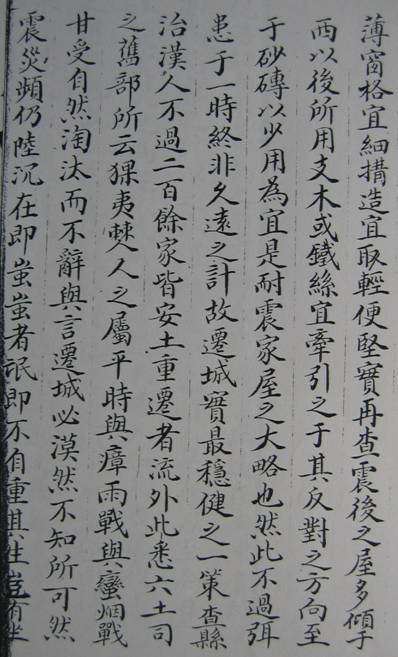 薄窗格宜細搆造宜取輕便堅實再查震後之屋多傾于
西以後所用支木或鐵絲宜牽引之于其反對之方向至
于砂磚以少用為宜是耐震家屋之大略也然此不過弭
患于一時終非久遠之計故遷城實最穩健之一策查縣
治漢人不過二百餘家皆安土重遷者流外此悉六土司
之舊部所云猓夷僰人之屬平時與瘴雨戰與蠻烟戰
甘受自然淘汰而不辭與言遷城必漠然不知所可然
震災頻仍陸沉在即蚩蚩者氓即不自重其生豈有坐